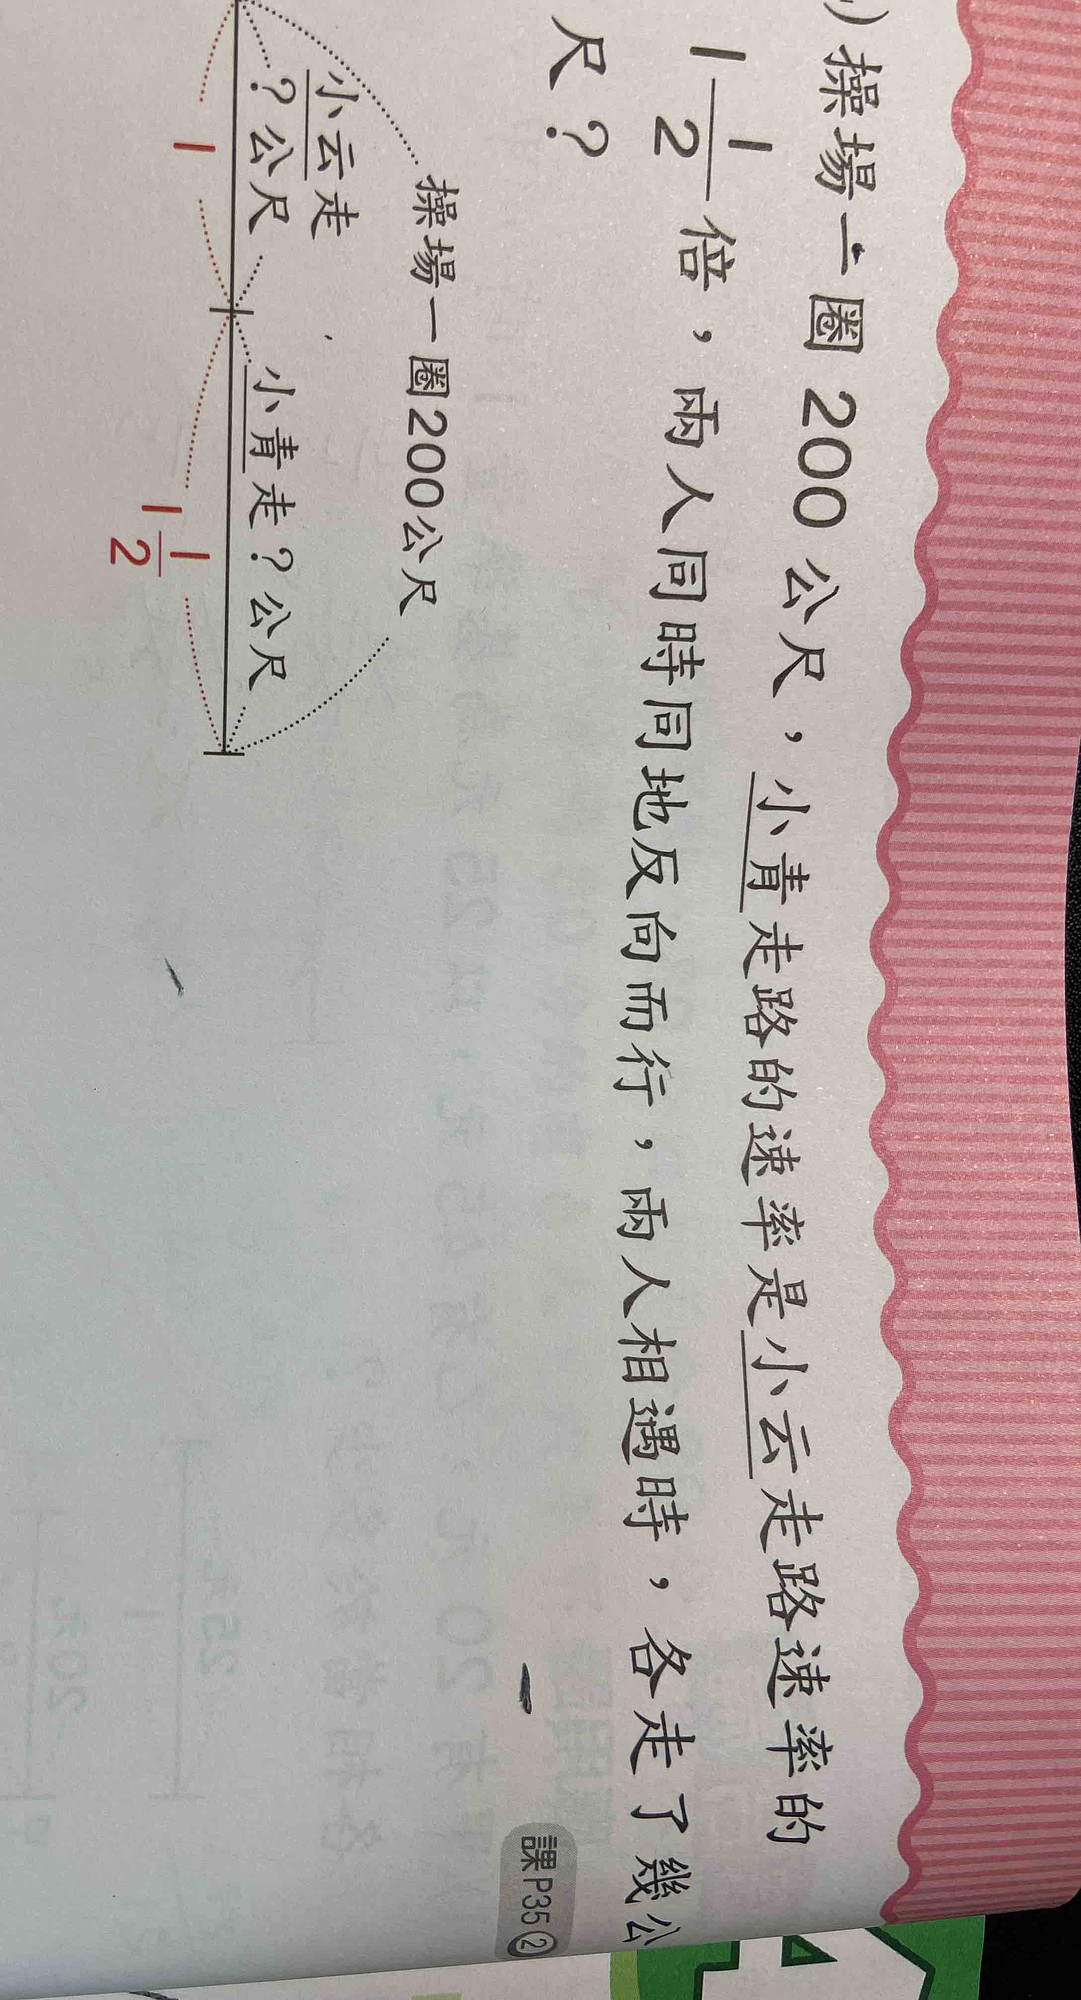 )操場一圈 200 公尺，小青走路的速率是小云走路速率的
1 1/2 倍，兩人同時同地反向而行，兩人相遇時，各走了幾公
尺？
課P35②
操場一圈200公尺
小云走
？公尺
小青走？公尺
1
1 1/2